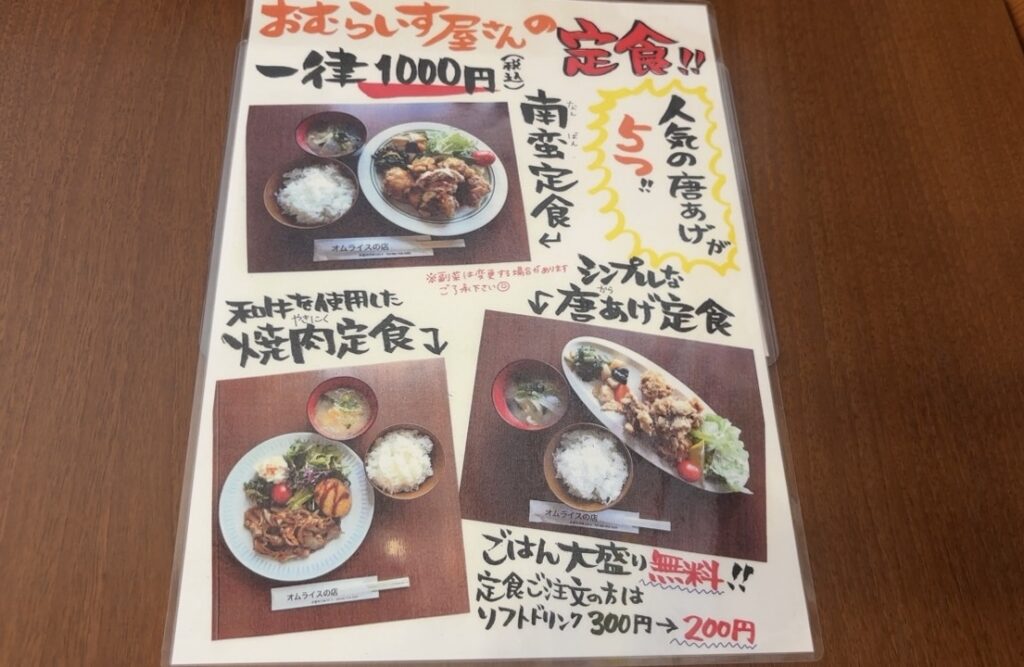 おむらいす屋さんの定食!!
一律1000円(税込)
人気の唐あげが
5つ!!
なん ばん
南蛮定食
オムライスの店
※副菜は変更する場合があります
ご了承下さい
シンプルな
から
唐あげ定食
和牛を使用した
やきにく
焼肉定食
オムライスの店
オムライスの店
ごはん大盛り無料!!
定食ご注文の方は
ソフトドリンク 300円→200円